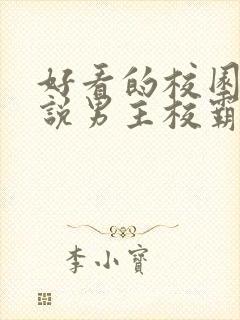 好看的校园
說男主校霸
李小寶